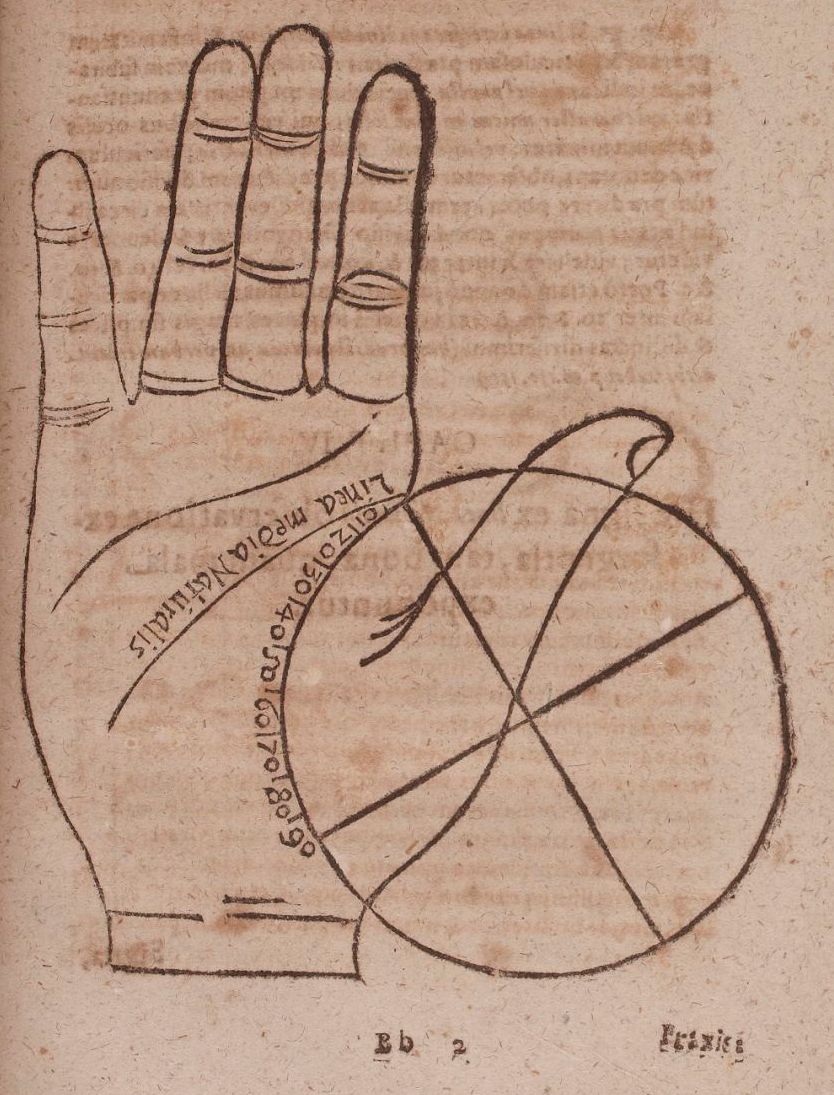 Linea media Naturalis
10 20 30 40 50 60 70 80 90
Bb 2